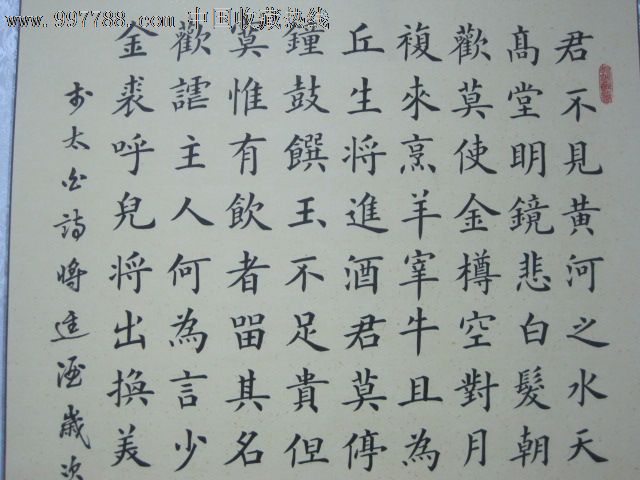 www.997788.com 中国收藏热线
君不見黃河之水天
髙堂明鏡悲白髮朝
歡莫使金樽空對月
複來烹羊宰牛且為
丘生将進酒君莫停
鐘鼓饌玉不足貴但
寞惟有飲者留其名
歡謔主人何為言少
金裘呼兒将出換美
书太白詩將進酒歲次